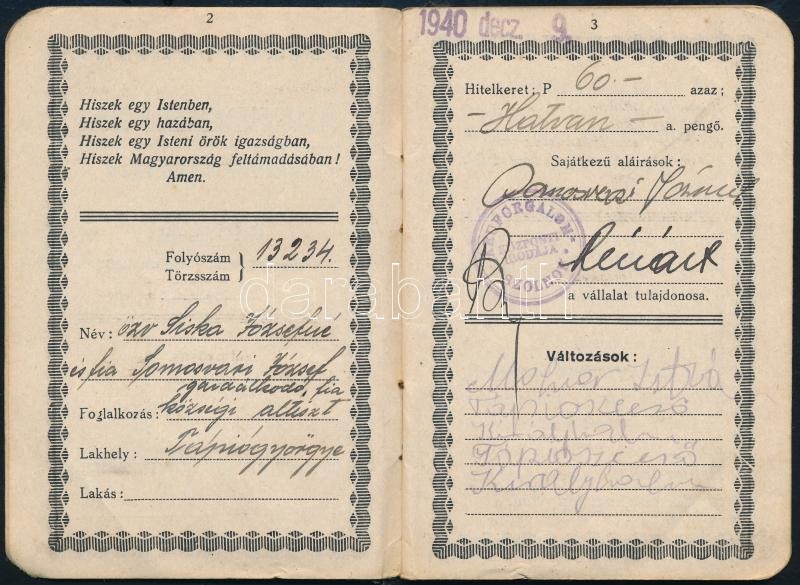 2
Hiszek egy Istenben,
Hiszek egy hazában,
Hiszek egy Isteni örök igazságban,
Hiszek Magyarország feltámadásában!
Amen.
Folyószám
Törzsszám } 13234.
Név: özv Siska Józsefné
és fia Somosvári József
gazdálkodó, fia
Foglalkozás: községi altiszt
Lakhely: Tápiógyörgye
Lakás:
1940 decz 9.
3
Hitelkeret: P 60.- azaz;
- Hatvan - a. pengő.
Sajátkezű aláírások:
Somosvári József
FORGALOM
KÖZPONTI
IRODÁJA
SZOLNOK
a vállalat tulajdonosa.
Változások:
Molnár István
Tápiókecső
Királyhalm
Tápiószecső
Királyhalm
darabanth